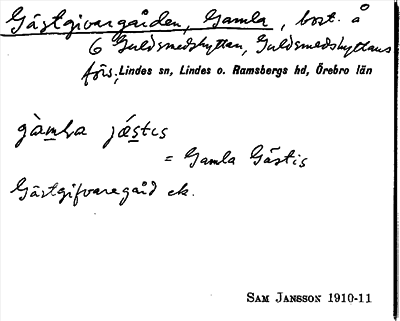 Gästgivargården, Gamla, bost. å
6 Guldsmedshyttan, Guldsmedshyttans
förs., Lindes sn, Lindes o. Ramsbergs hd, Örebro län
gàmḷa jǽstıs
= Gamla Gästis
Gästgifvaregård ek.
SAM JANSSON 1910-11